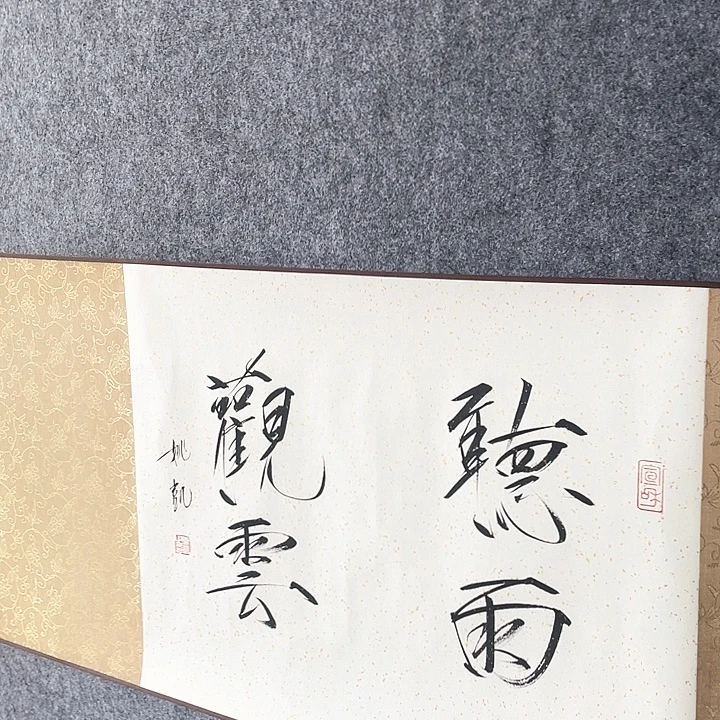 聽雨
觀雲
姚凱